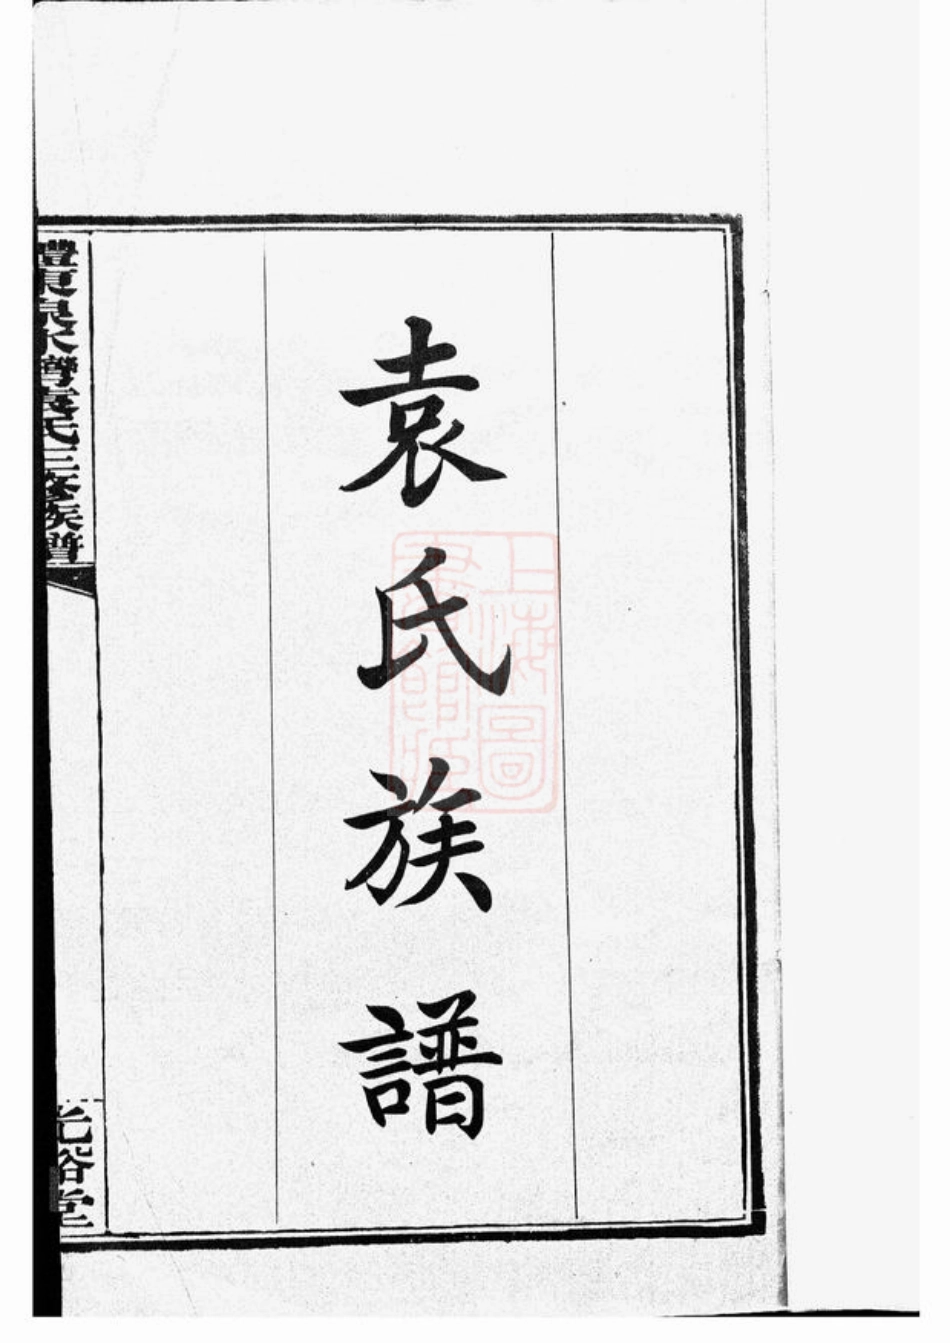 袁氏族譜
醴東泉水灣袁氏三修族譜
裕堂
上海圖
書館藏